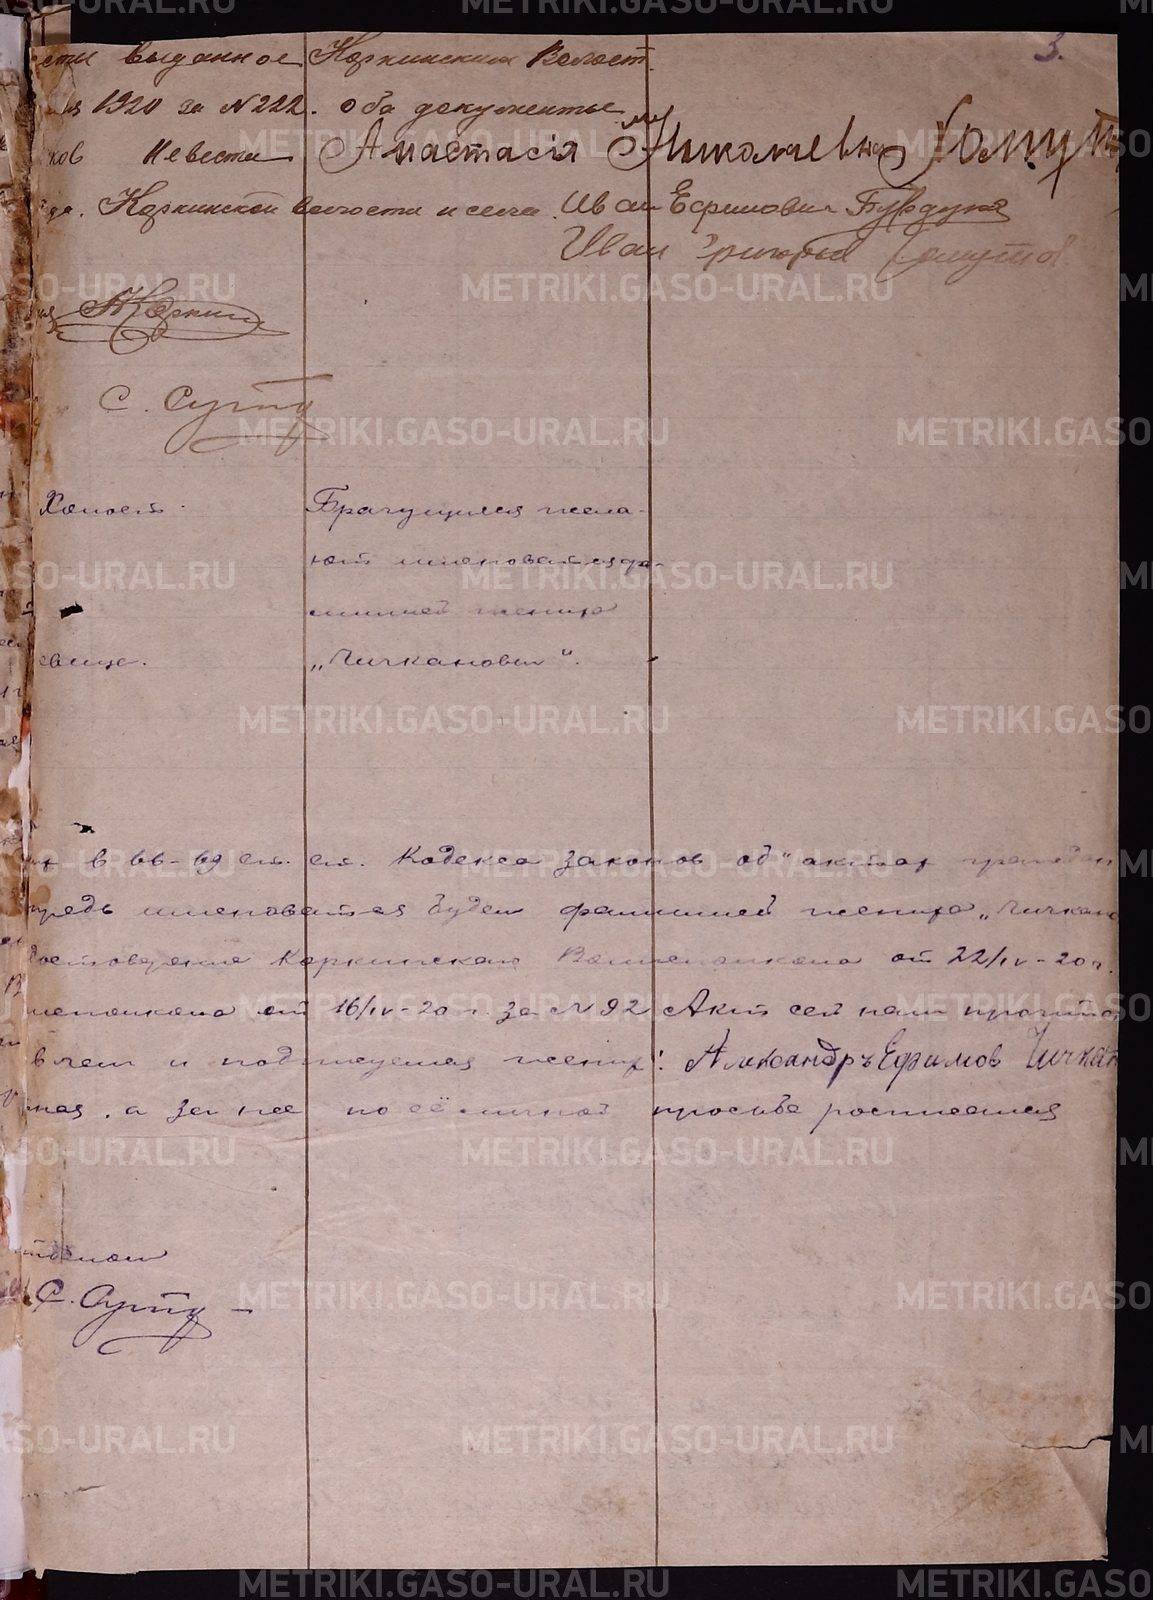 3.
сти выданное Коркинским Волост.
1920 за № 222. оба документы
ков Невеста Анастасія Николаевна Хомут
Коркинской волости и села. Иван Ефимович Бурдука
Иван Григорьев Хомутов
Коркин
С. Сутту
Холост.
Брачущиеся жела-
ют именоватся фа-
милией жениха
евица. „Чичкановы“.
в 66-69 ст. ст. Кодекса законов об актах граждан
предь именоватся будем фамилией жениха „Чичкан
достоверение Коркинскаго Волисполкома от 22/IV-20 г.
исполкома от 16/IV-20 г. за № 92 Акт сей нам прочита
в чем и подписуемся жених: Александръ Ефимов Чичкан
ная, а за нее по её личной просьбе росписался
С. Сутту
METRIKI.GASO-URAL.RU